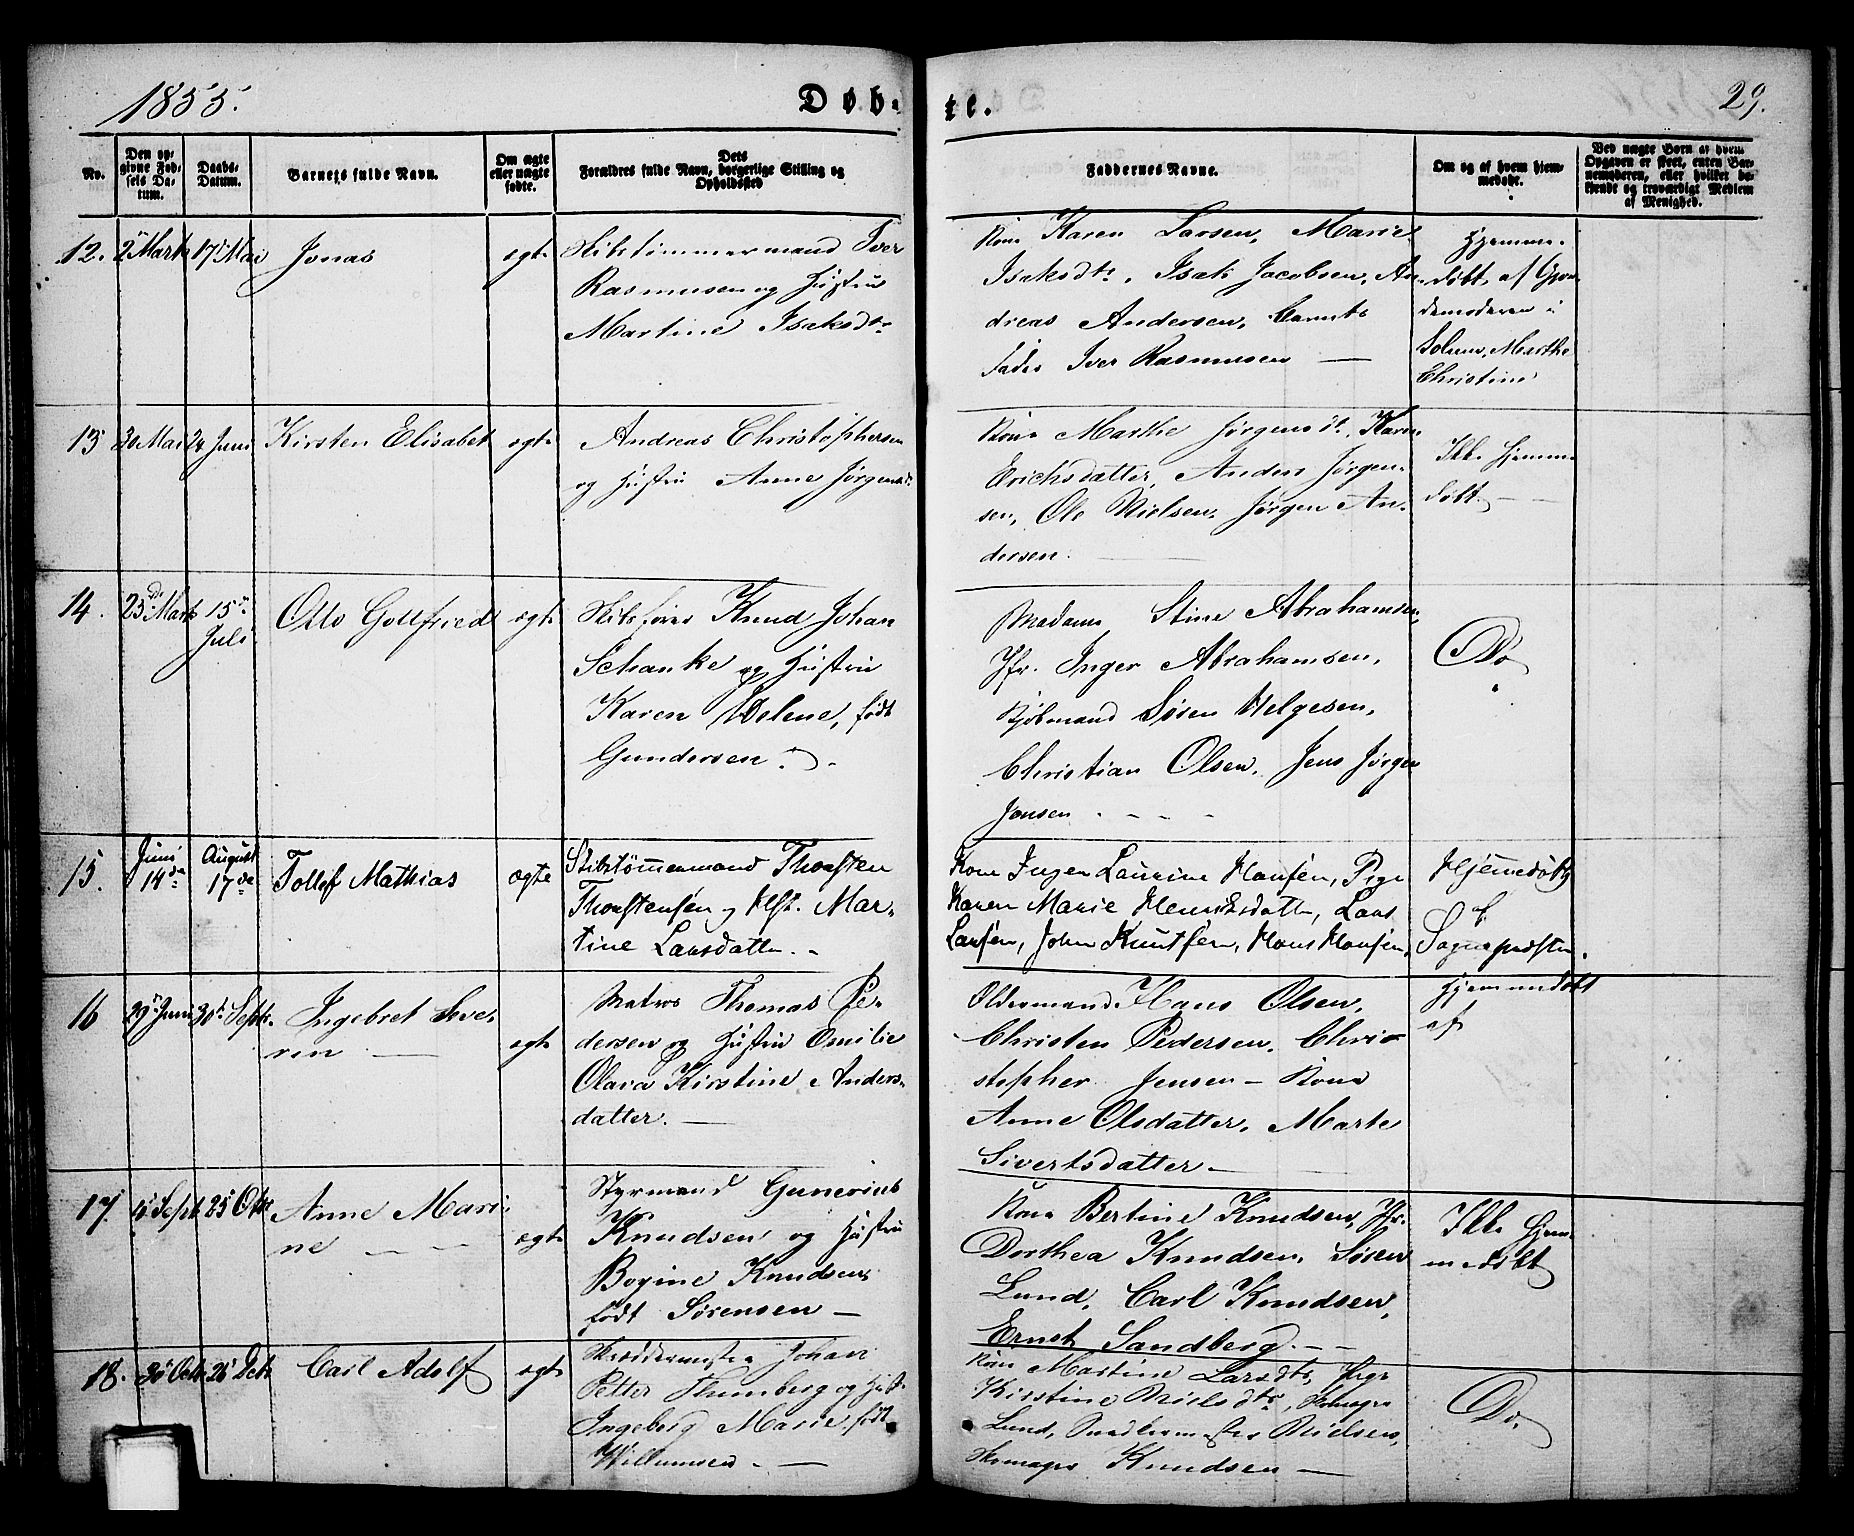 1855.
Døb-
te.
29.
No.
Den op-
givne Fød-
sels Da-
tum.
Daabs-
Datum.
Barnets fulde Navn.
Om ægte
eller uægte
fødte.
Dets
Forældres fulde Navn, borgerlige Stilling og
Opholdssted
Faddernes Navne.
Om og af hvem hjem-
medøbt.
Ved uægte Børn af hvem
Opgaven er skeet, enten Bar-
nemoderen, eller hvilket be-
kjendt og troværdigt Medlem
af Menighed.
12. 2 Marts 17 Mai Jonas ægte
Skibstømmermand Iver
Rasmusen og Hustru
Martine Isaksdtr
Kone Karen Larsen, Marie
Isaksdtr, Isak Jacobsen, An-
dreas Andersen, Barnets
Fader Iver Rasmussen —
Hjemme-
døbt af Gjor-
demoderen i
Solum, Marthe
Christine
13 30 Mai 24 Juni Kirsten Elisabet ægte
Andreas Christophersen
og Hustru Anne Jørgensdt
Kone Marthe Jørgensdt, Karen
Erichsdatter, Anders Jørgen-
sen, Ole Nielsen, Jørgen An-
dersen.
Ikke Hjemme-
døbt
14. 23de Marts 15de
Juli
Otto Gottfried ægte
Skibsfører Knud Johan
Schanke og Hustru
Karen Helene, født
Gundersen.
Madame Stine Abrahamsen,
Jfr. Inger Abrahamsen,
Kjøbmand Søren Helgesen,
Christian Olsen, Jens Jørgen
Jonsen
Do
15. Juni
14de
August
17de
Tollef Mathias ægte
Skibstømmermand Thorsten
Thorstensen og Hst. Mar-
tine Larsdatter.
Kone Inger Laurine Hansen, Pige
Karen Marie Henriksdatter, Lars
Larsen, John Knutsen, Hans Hansen,
Hjemmedøbt
Sognepresten.
16 29 Juni 30 Septr. Ingebret Seve-
rin — ægte
Matros Thomas Pe-
dersen og Hustru Omilie
Olava Kirstine Anders-
datter. —
Oldermand Hans Olsen,
Christen Pedersen, Chri-
stopher Jensen — Kone
Anne Olsdatter, Marte
Sivertsdatter —
Hjemmedøbt
af
17. Sept. 25 Octr Anne Mari-
ne ægte
Styrmand Gunerius
Knudsen og Hustru
Bogine Knudsen
født Sørensen —
Kone Bertine Knudsen, Jfr.
Dorthea Knudsen, Søren
Lund, Carl Knudsen,
Ernst Sandberg. —
Ikke Hjem-
medøbt
18. 30 Octr 26 Decbr Carl Adolf ægte
Skræddermester Johan
Petter Thunberg og Hust.
Ingeborg Marie, født
Willumsen —
Kone Martine Larsdtr, Pige
Kirstine Nielsdtr, Skomager
Lund, Snedkermester Nielsen,
Skomager Knudsen —
Do.